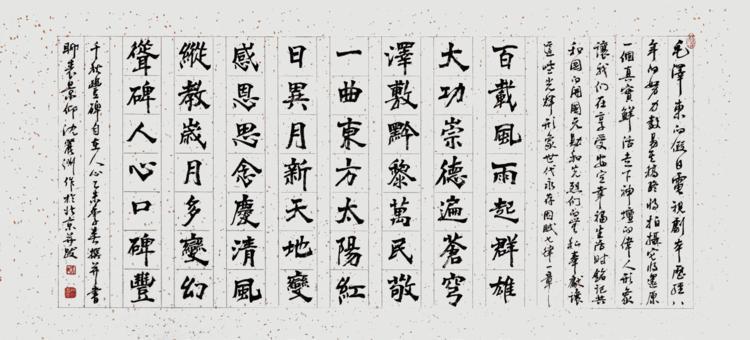 毛澤東的假日電視劇本歷經八
年的努力数易其稿終將拍攝它將還原
一個真實鮮活走下神壇的偉人形象
讓我们在享受安定幸福生活时銘記共
和國的開國元勳和先烈们的無私奉獻讓
這些光輝形象世代永存因賦七律一章
百載風雨起群雄
大功崇德遍蒼穹
澤敷黔黎萬民敬
一曲東方太陽紅
日異月新天地變
感恩思念慶清風
縱教歲月多變幻
聳碑人心口碑豐
千秋豐碑自在人心乙未季春撰并書
聊表景仰沈洲作於北京并跋